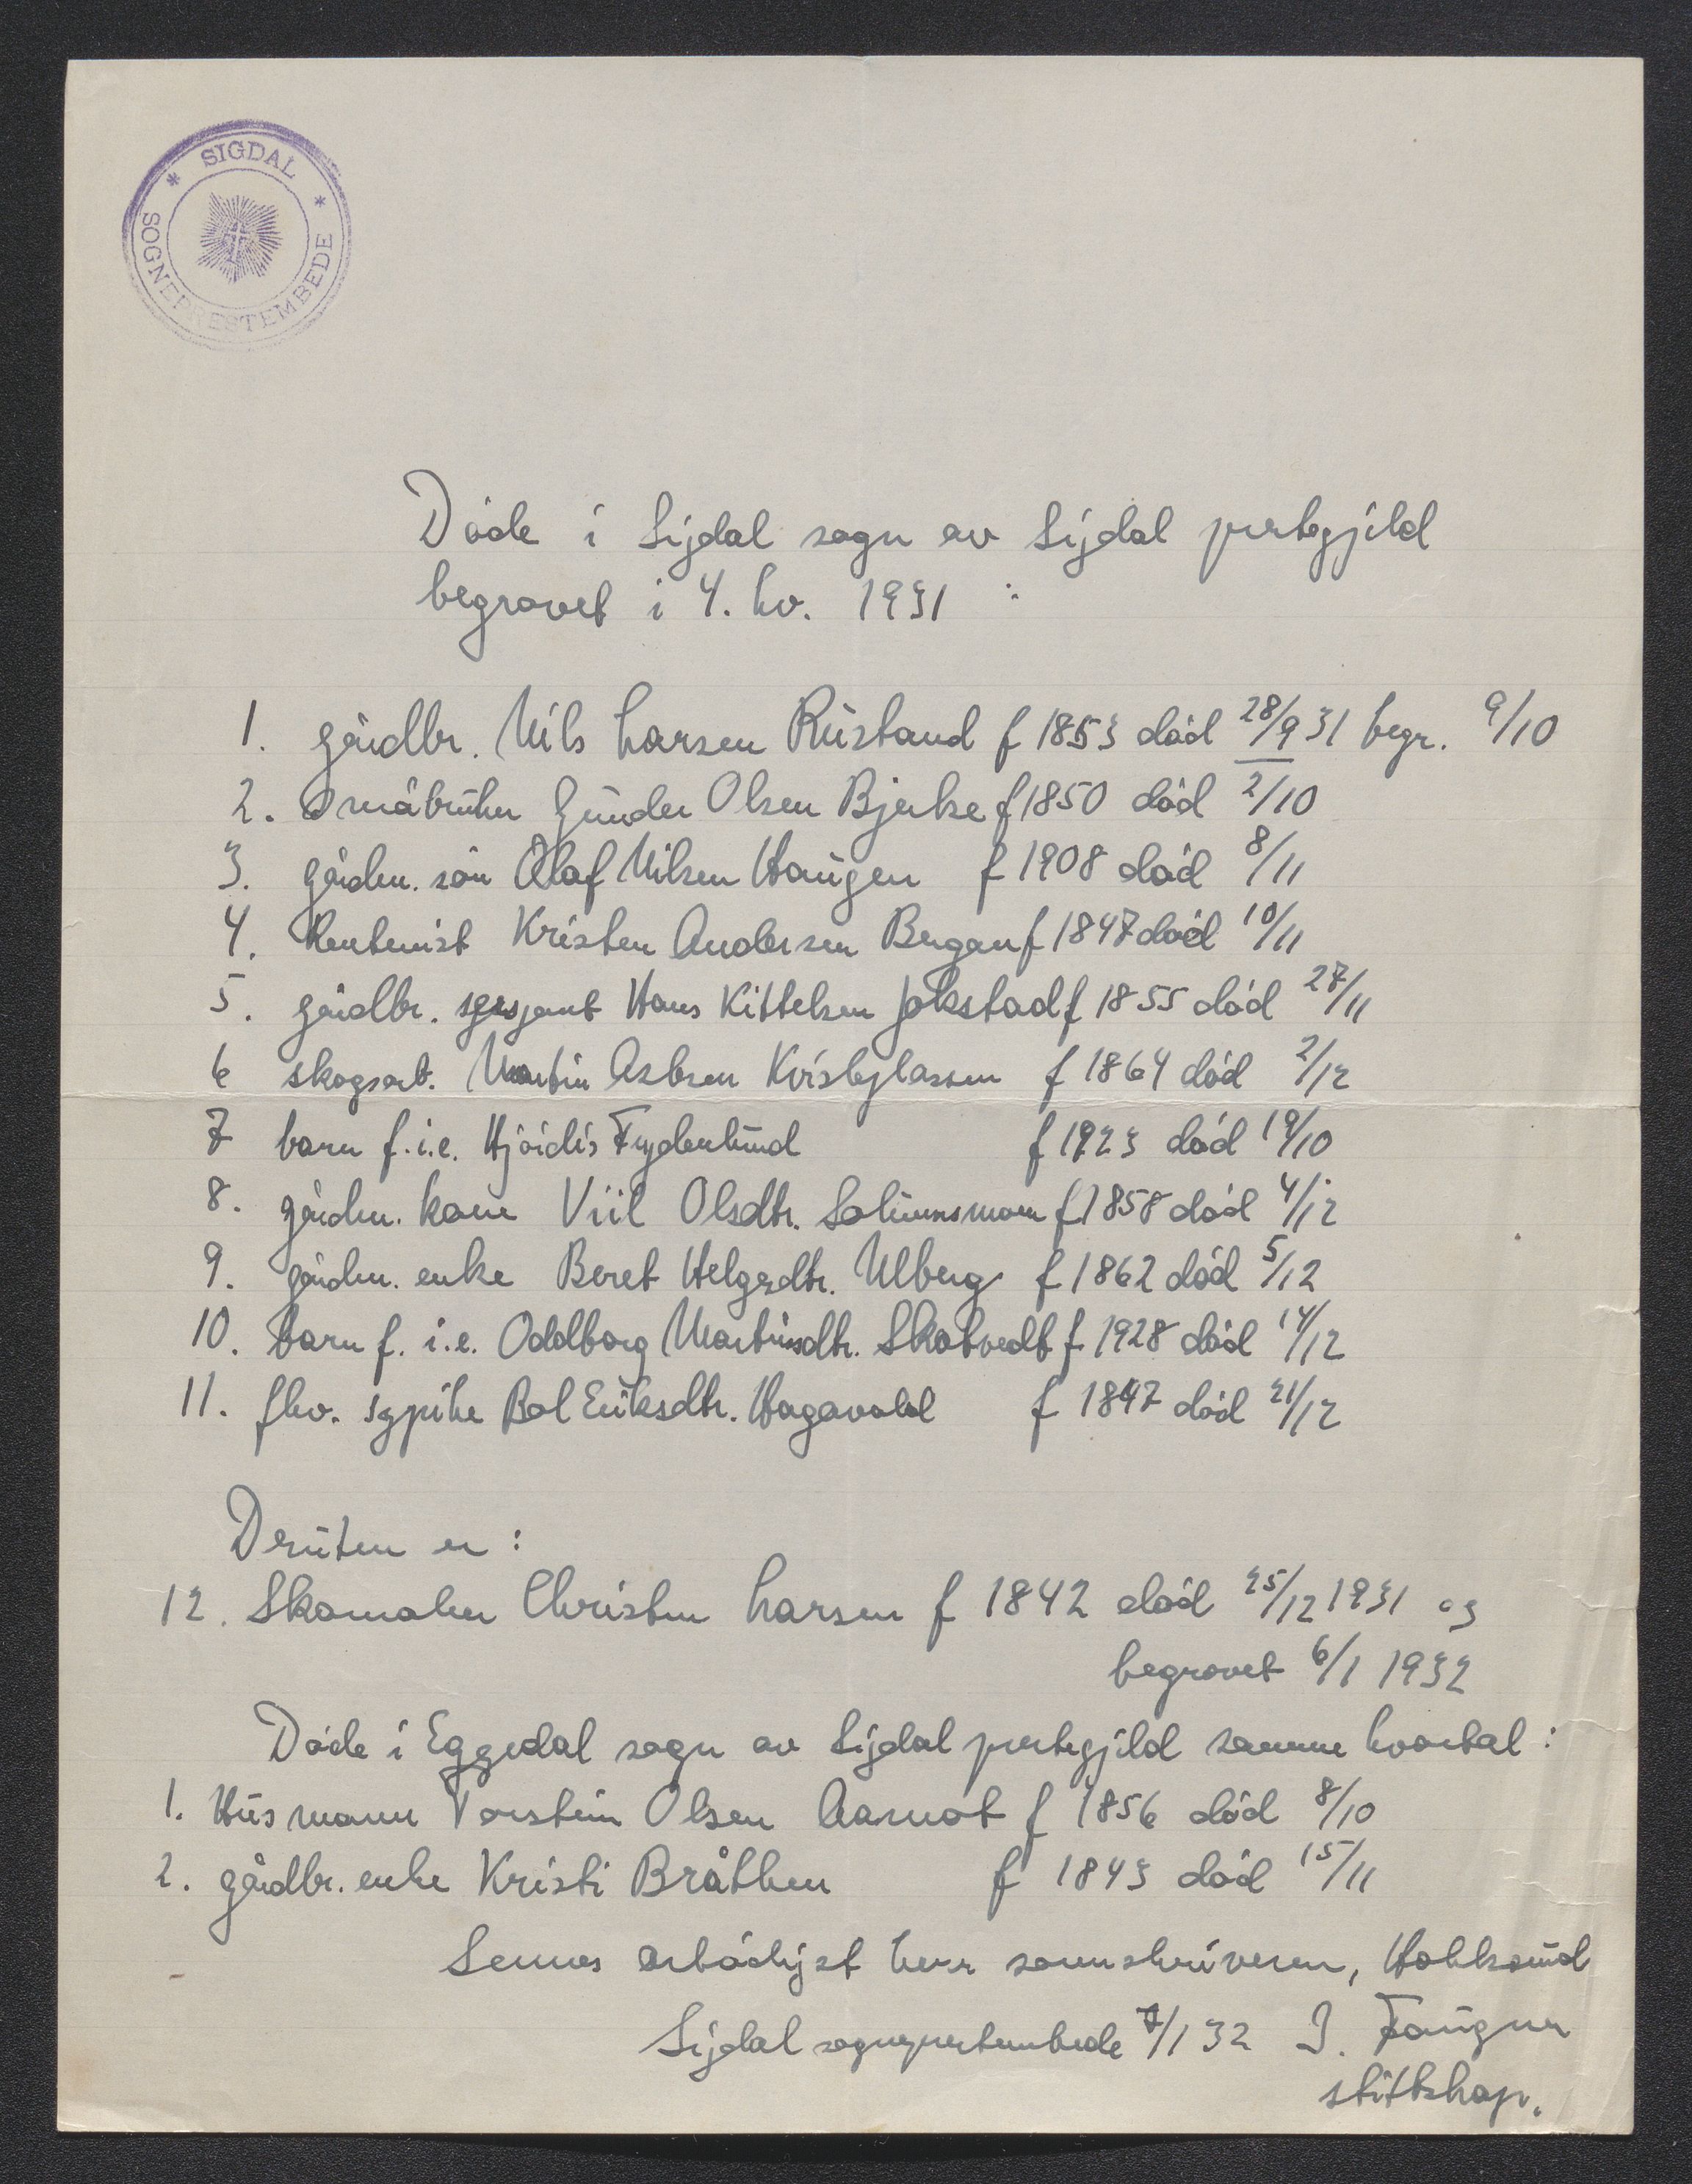 SIGDAL
SOGNEPRESTEMBEDE
Døde i Sigdal sogn av Sigdal prestegjeld
begravet i 4. kv. 1931 :
1. gårdbr. Nils Larsen Rustand f 1853 død 28/9 31 begr. 9/10
2. småbruker Gunder Olsen Bjerke f 1850 død 2/10
3. gårdm. søn Olaf Nilsen Haugen f 1908 død 8/11
4. Rentenist Kristen Andersen Bergan f 1847 død 10/11
5. gårdbr. sersjant Hans Kittelsen Jokstad f 1855 død 27/11
6 skogsarb. Martin Asbsen Kvisleflassen f 1864 død 2/12
7 barn f.i.e. Hjørdis Frydenlund f 1923 død 19/10
8. gårdm. kone Viil Olsdtr. Solumsmoen f 1858 død 4/12
9. gårdm. enke Beret Helgesdtr. Ulberg f 1862 død 5/12
10. barn f. i.e. Oddborg Martinsdtr. Skatvedt f 1928 død 14/12
11. fhv. sypike Bol Eriksdtr. Hagavold f 1847 død 21/12
Druten er :
12. Skomaker Christen Larsen f 1842 død 25/12 1931 og
begravet 6/1 1932
Døde i Eggedal sogn av Sigdal prestegjeld samme kvartal :
1. Husmann Torstein Olsen Aamot f 1856 død 8/10
2. gårdbr. enke Kristi Bråthen f 1843 død 15/11
Sendes ærbødigst herr sorenskriveren, Hokksund
Sigdal sogneprestembede 7/1 32 J. Faugner
stiftskap.